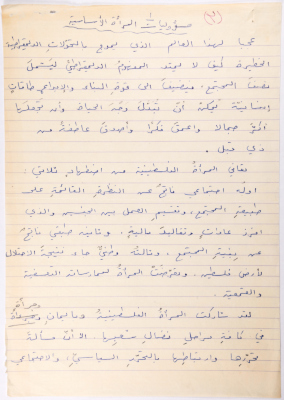 (٢)
مسؤوليات المرأة الأساسية
نحيا بهذا العالم الذي يموج بالتحولات الديمقراطية
الخطيرة كيف لا يمتد المفهوم الديمقراطي ليشمل
نصف المجتمع، ويضيف الى قوة البناء والإبداع طاقات
إنسانية تمكن أن تبدل وجه الحياة وأن تجعلها
أكثر جمالا وأعمق فكرا وأصدق عاطفة من
ذي قبل.
تعاني المرأة الفلسطينية من اضطهاد ثلاثي:
أوله اجتماعي ناتج عن النظرة القائمة على
طبيعة المجتمع، وتقسيم العمل بين الجنسين والذي
افرز عادات وتقاليد بالية، وثانيه طبقي ناتج
عن بنية المجتمع، وثالثه وطني جاء نتيجة الاحتلال
لأرض فلسطين، وتعرضت المرأة للممارسات التعسفية
والقمعية.
لقد شاركت المرأة الفلسطينية وبإيمان وجرأة
في كافة مراحل نضال شعبها، الا أن مسألة
تحررها وارتباطها بالتحرر السياسي والاجتماعي